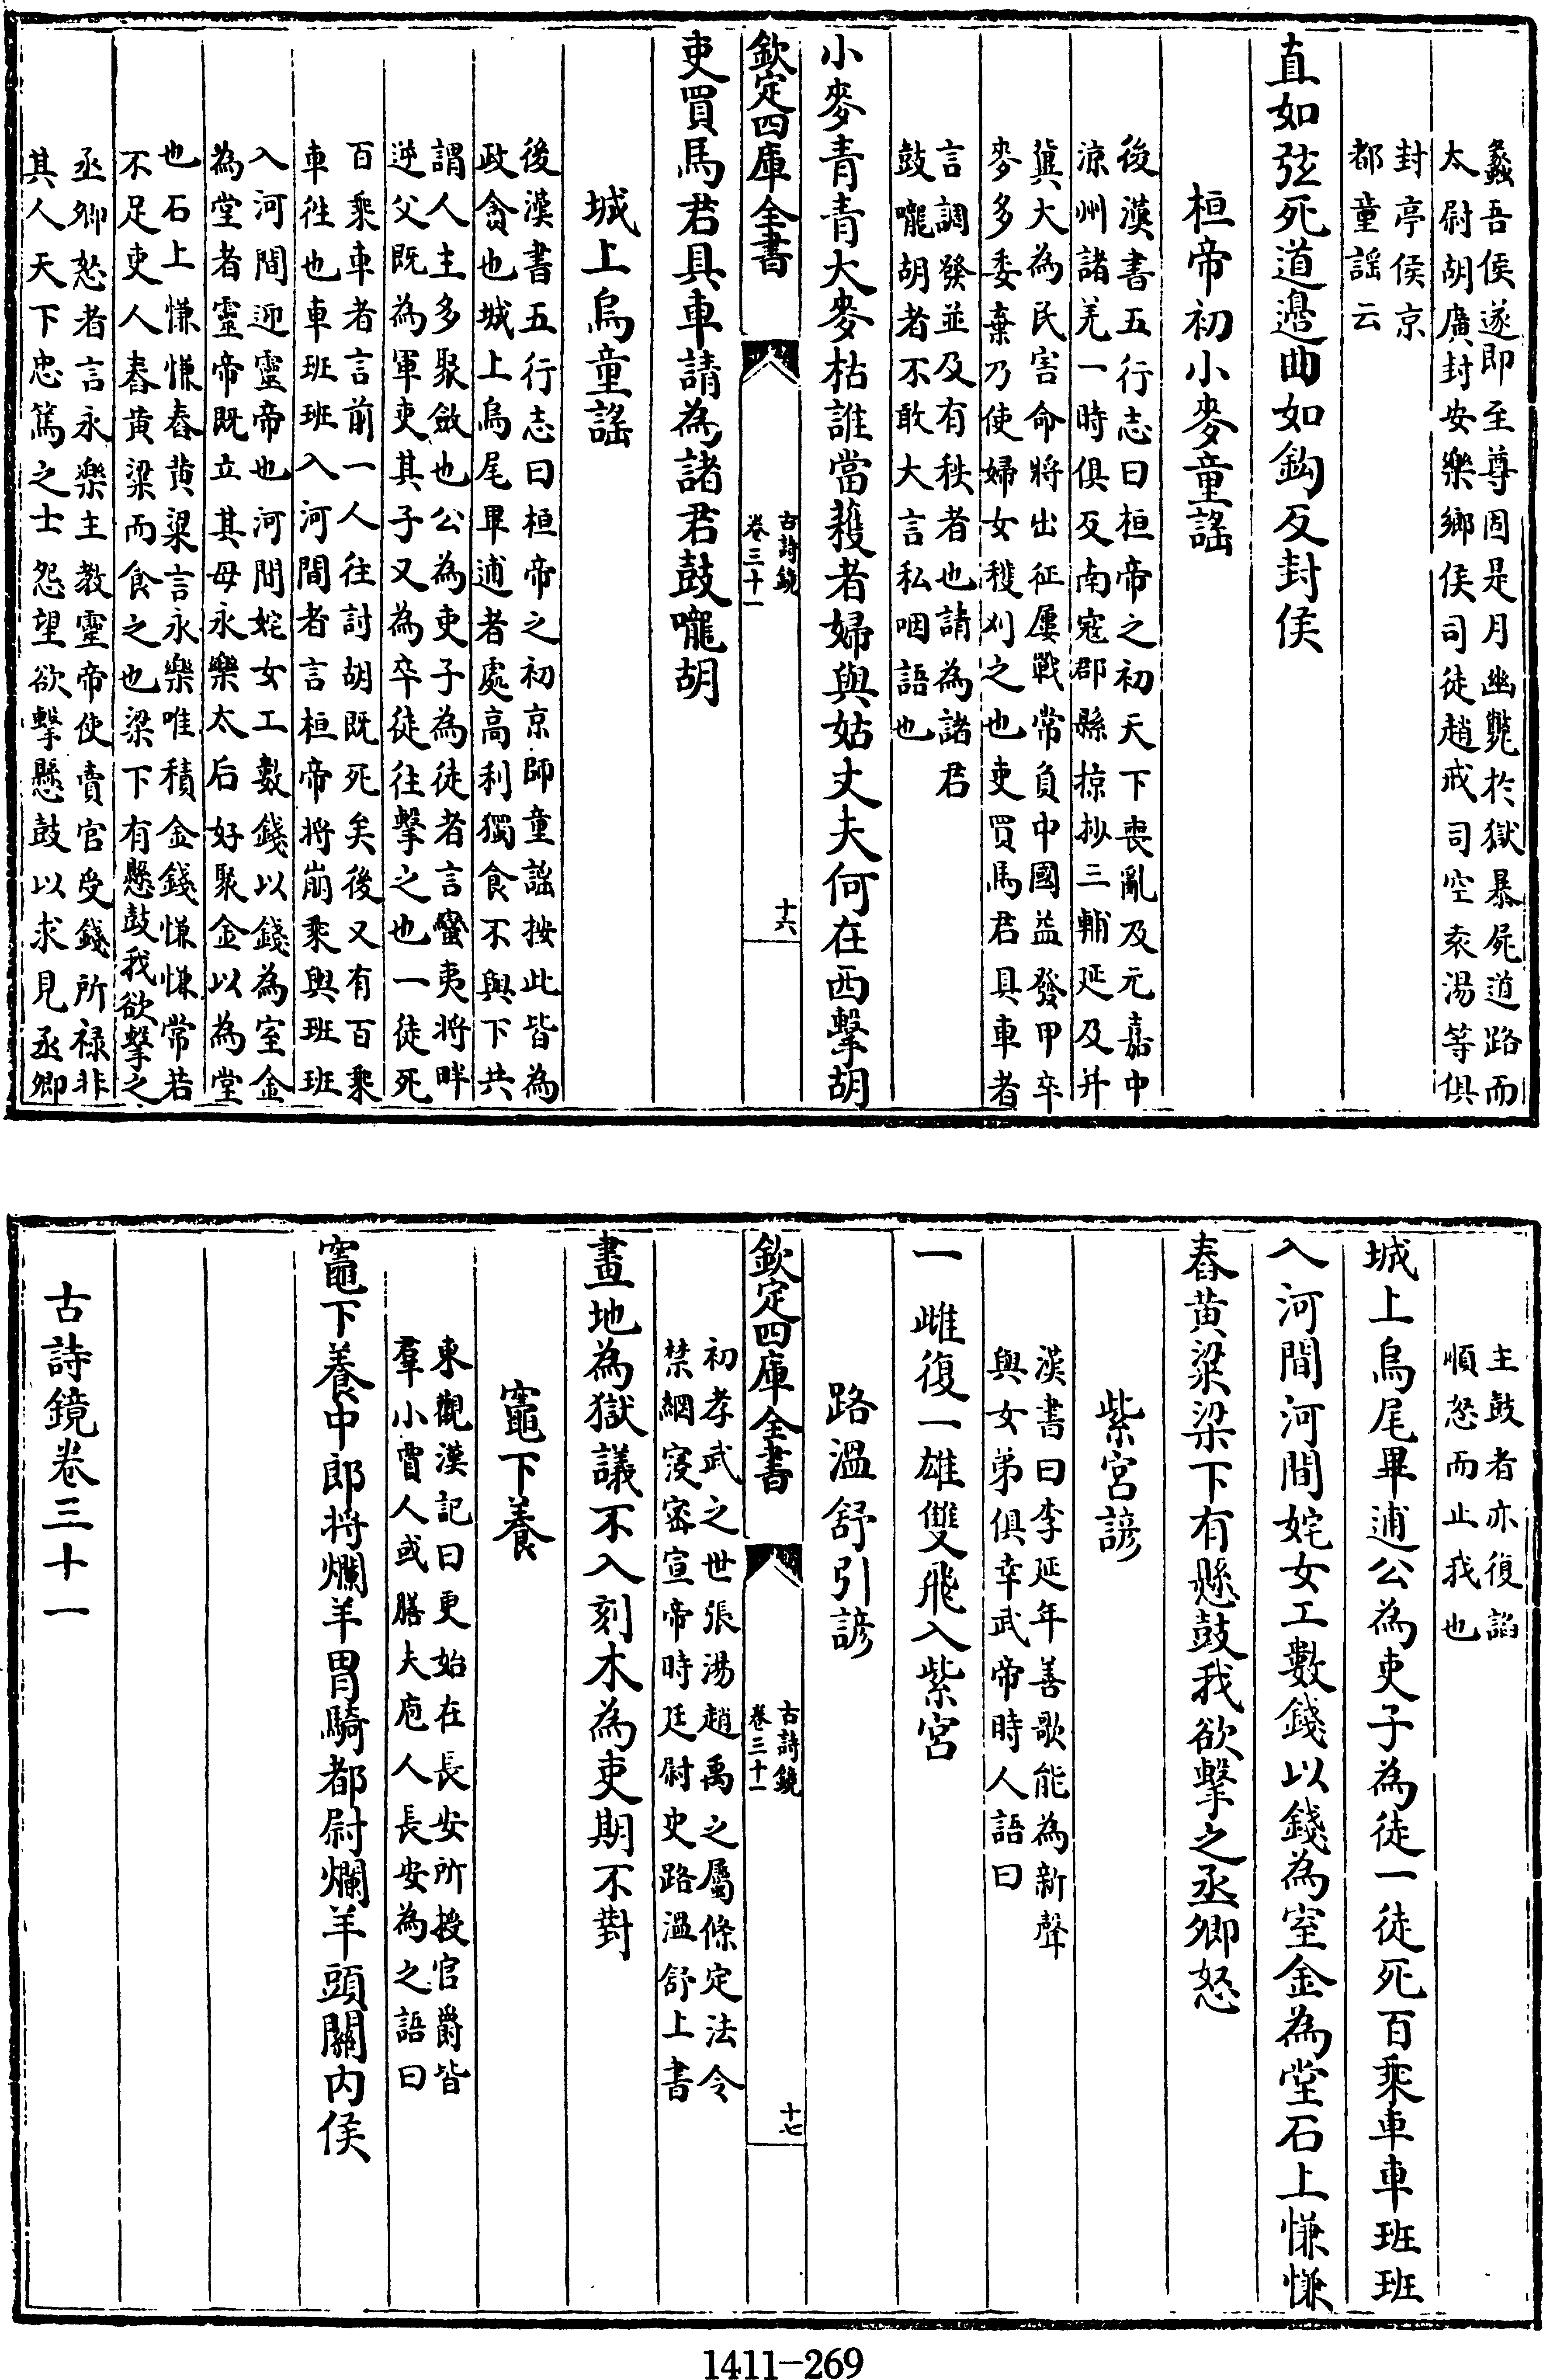 蠡吾侯遂即至尊固是月幽斃於獄暴屍道路而
太尉胡廣封安樂鄉侯司徒趙戒司空袁湯等俱
封亭侯京
都童謡云
直如弦死道邉曲如鈎反封侯
桓帝初小麥童謡
後漢書五行志曰桓帝之初天下䘮亂及元嘉中
涼州諸羌一時俱反南寇郡縣掠抄三輔延及并
冀大為民害命將出征屢戰常負中國益發甲卒
麥多委棄乃使婦女穫刈之也吏買馬君具車者
言調發並及有秩者也請為諸君
鼓嚨胡者不敢大言私咽語也
小麥青青大麥枯誰當穫者婦與姑丈夫何在西擊胡
欽定四庫全書
古詩鏡
卷三十一
十六
吏買馬君具車請為諸君鼓嚨胡
城上烏童謡
後漢書五行志曰桓帝之初京師童謡按此皆為
政貪也城上烏尾畢逋者處高利獨食不與下共
謂人主多聚斂也公為吏子為徒者言蠻夷將畔
逆父既為軍吏其子又為卒徒往擊之也一徒死
百乘車者言前一人往討胡既死矣後又有百乘
車徃也車班班入河間者言桓帝將崩乘輿班班
入河間迎靈帝也河間姹女工數錢以錢為室金
為堂者靈帝既立其母永樂太后好聚金以為堂
也石上慊慊舂黄粱言永樂唯積金錢慊慊常若
不足吏人舂黄粱而食之也梁下有懸鼓我欲擊之
丞卿怒者言永樂主教靈帝使賣官受錢所禄非
其人天下忠篤之士怨望欲擊懸鼓以求見丞卿
主鼓者亦復謟
順怒而止我也
城上烏尾畢逋公為吏子為徒一徒死百乘車車班班
入河間河間姹女工數錢以錢為室金為堂石上慊慊
舂黄粱梁下有懸鼓我欲擊之丞卿怒
紫宮諺
漢書曰李延年善歌能為新聲
與女弟俱幸武帝時人語曰
一雌復一雄雙飛入紫宮
路溫舒引諺
欽定四庫全書
古詩鏡
卷三十一
十七
初孝武之世張湯趙禹之屬條定法令
禁網寖密宣帝時廷尉史路溫舒上書
畫地為獄議不入刻木為吏期不對
竈下養
東觀漢記曰更始在長安所授官爵皆
羣小賈人或膳夫庖人長安為之語曰
竈下養中郎將爛羊胃騎都尉爛羊頭關内侯
古詩鏡卷三十一
1411-269